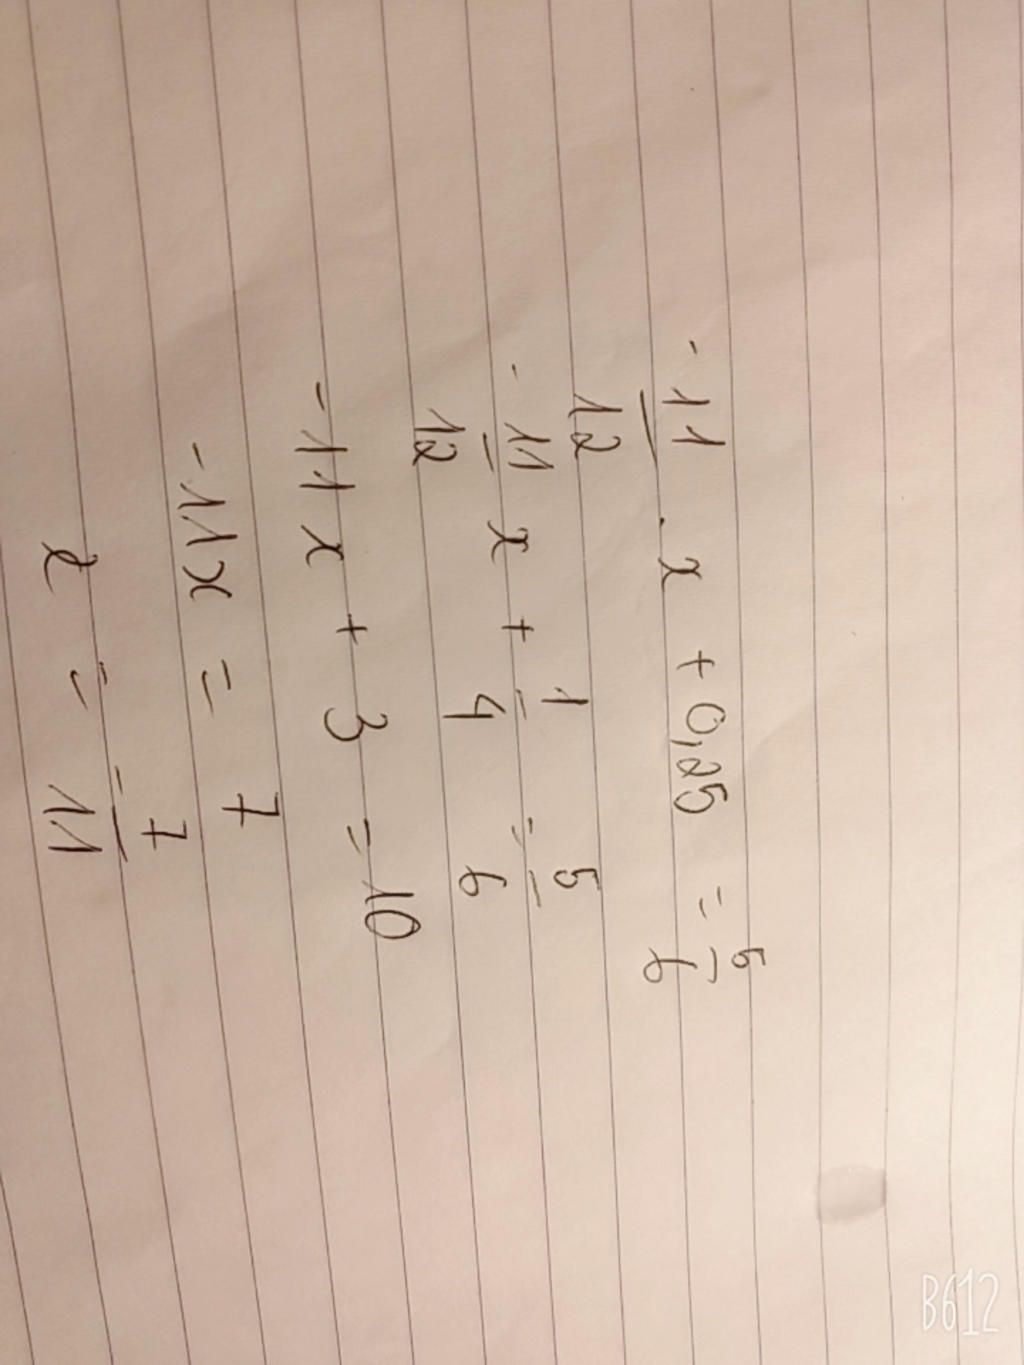 -11/12 . x + 0,25 = 5/6
-11/12 x + 1/4 = 5/6
-11x + 3 = 10
-11x = 7
x = -7/11
B612